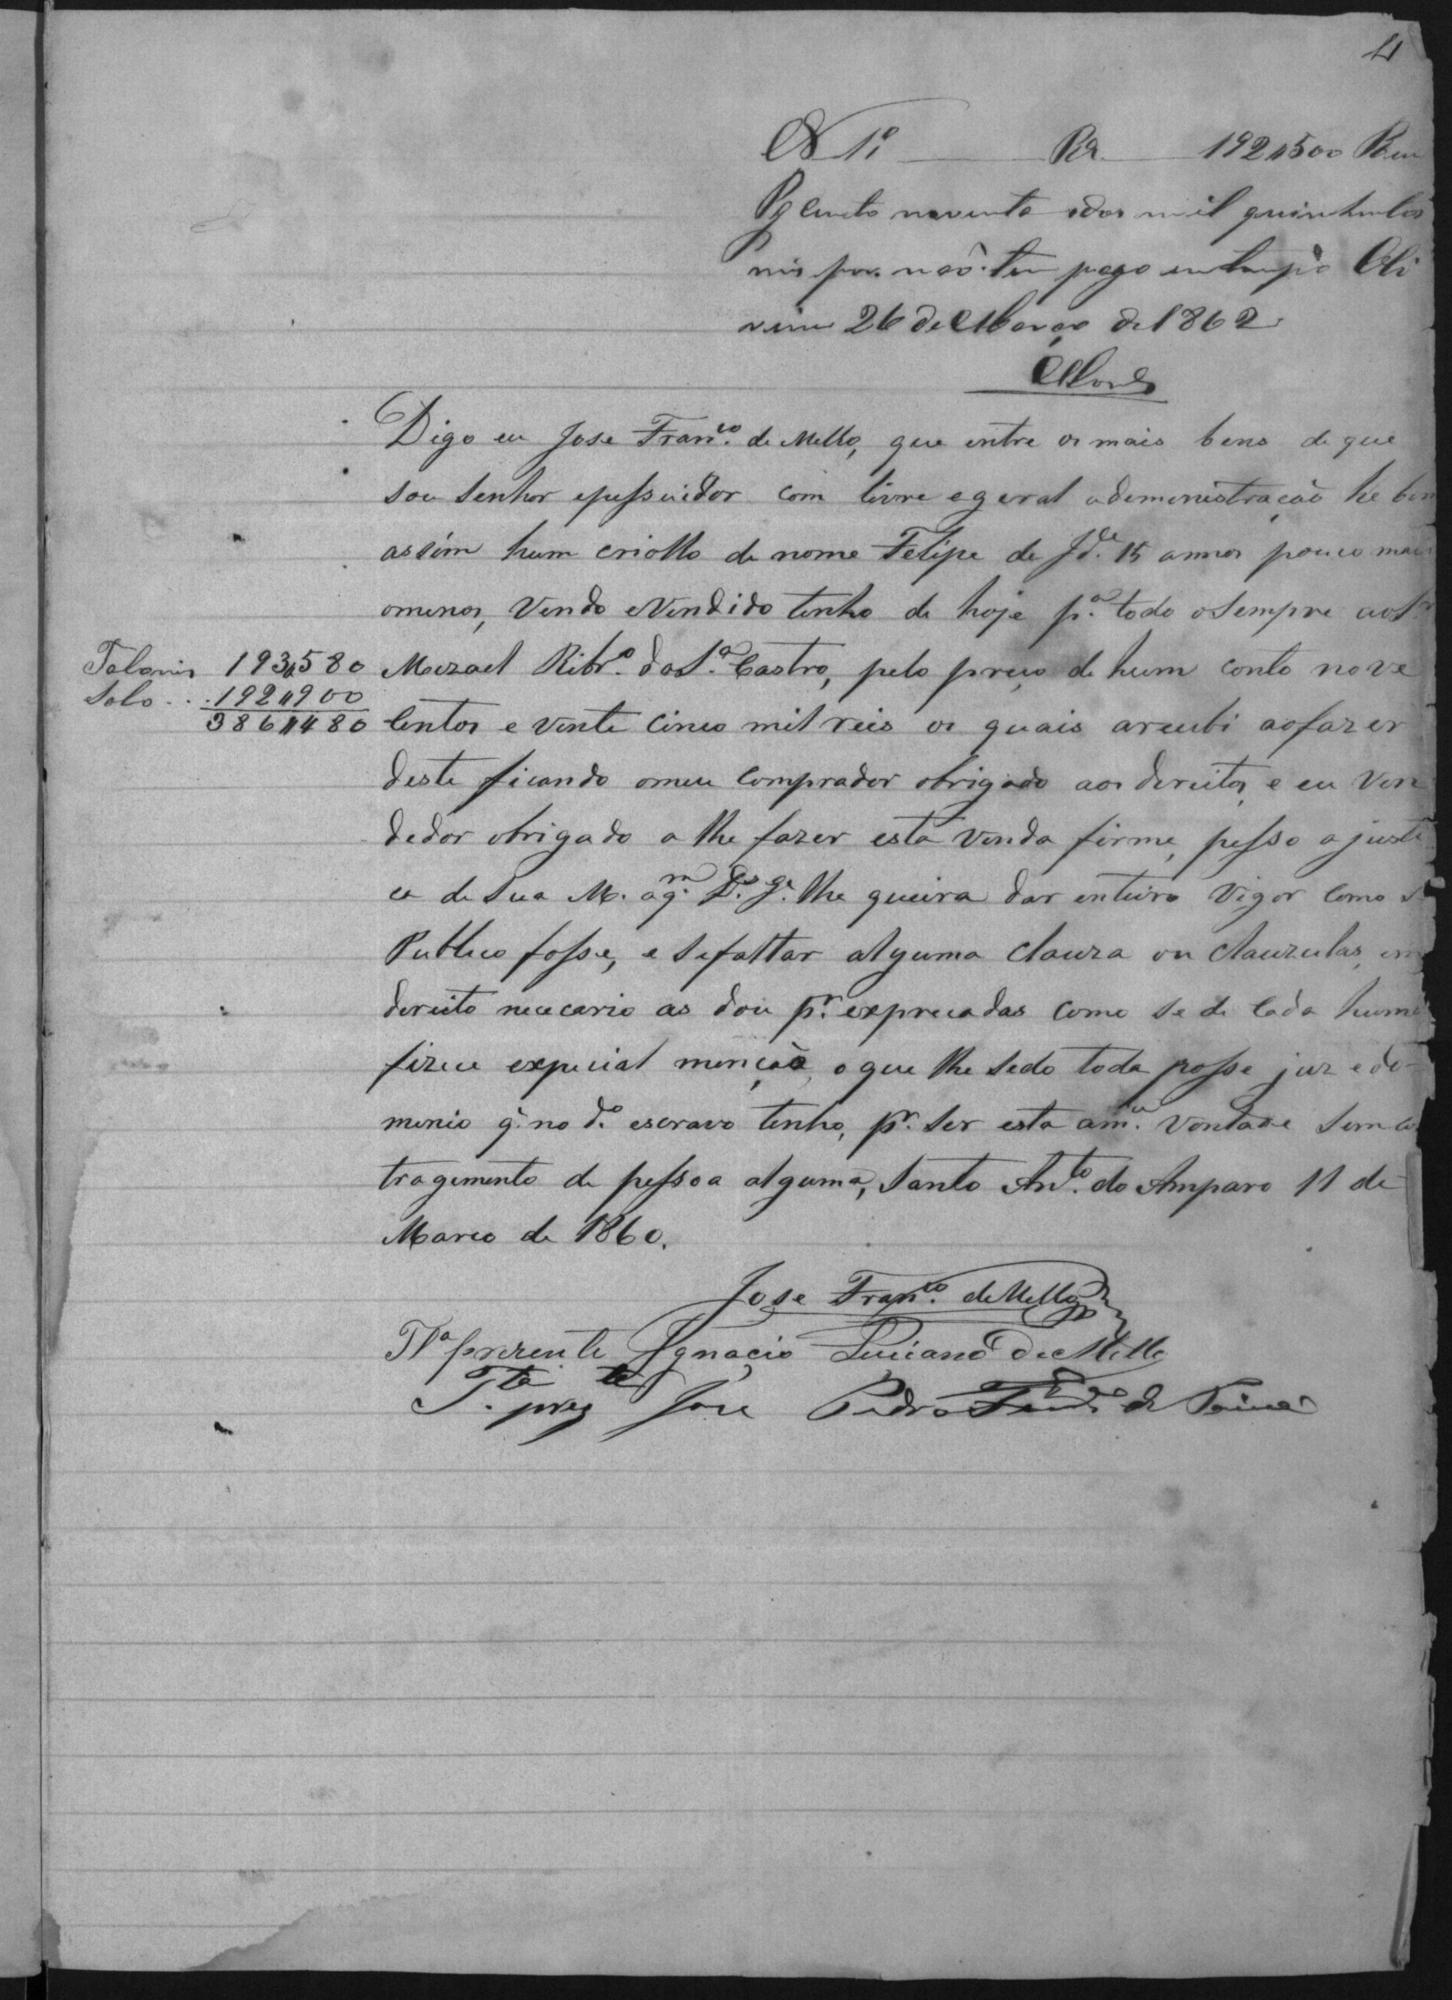 4
N 1º Rs 192$500 Reis
Pg cento noventa e dos mil quinhentos
reis por não ter pago em tempo Oli
veira 26 de Março de 1862
Digo eu Jose Franco. de Mello, que entre os mais bens de que
sou senhor epessuidor com livre egeralademenistração he bem
assim hum criollo de nome Felipe de Jde. 15 annos pouco mais
omenos, Vendo eVendido tenho de hoje pa. todo osempre aoSr
Talonis 193$580
Mizael Ribro. da Sa. Castro, pelo preço de hum conto nove
Selo . . 192$900
386$480
Centos e vente Cinco mil reis os quais arecubi aofazer
deste ficando omeu Comprador obrigado aos dereitos, e eu Ven
dedor obrigado a lhe fazer esta venda firme, pesso ajusti
ca de Sua M. aqm. Ds. ge. lhe queira dar enteiro Vigor Como s
Publico fosse, e sefaltar alguma Clauza ou Clauzulas, em
dereito nececario as dou pr. exprecadas Como se de Cada huma
fizece expecial menção, o que lhe sedo toda posse juz edo-
menio q. no do. escravo tenho, pr. ser esta ama. Vontade Sem co
tragemento de pessoa alguma, Santo Anto. do Amparo 11 de
Marco de 1860.
Jose Franco. de Mello
Ta prezente Ignacio Luciano de Mello
Tta. prezte Jose Pedro de